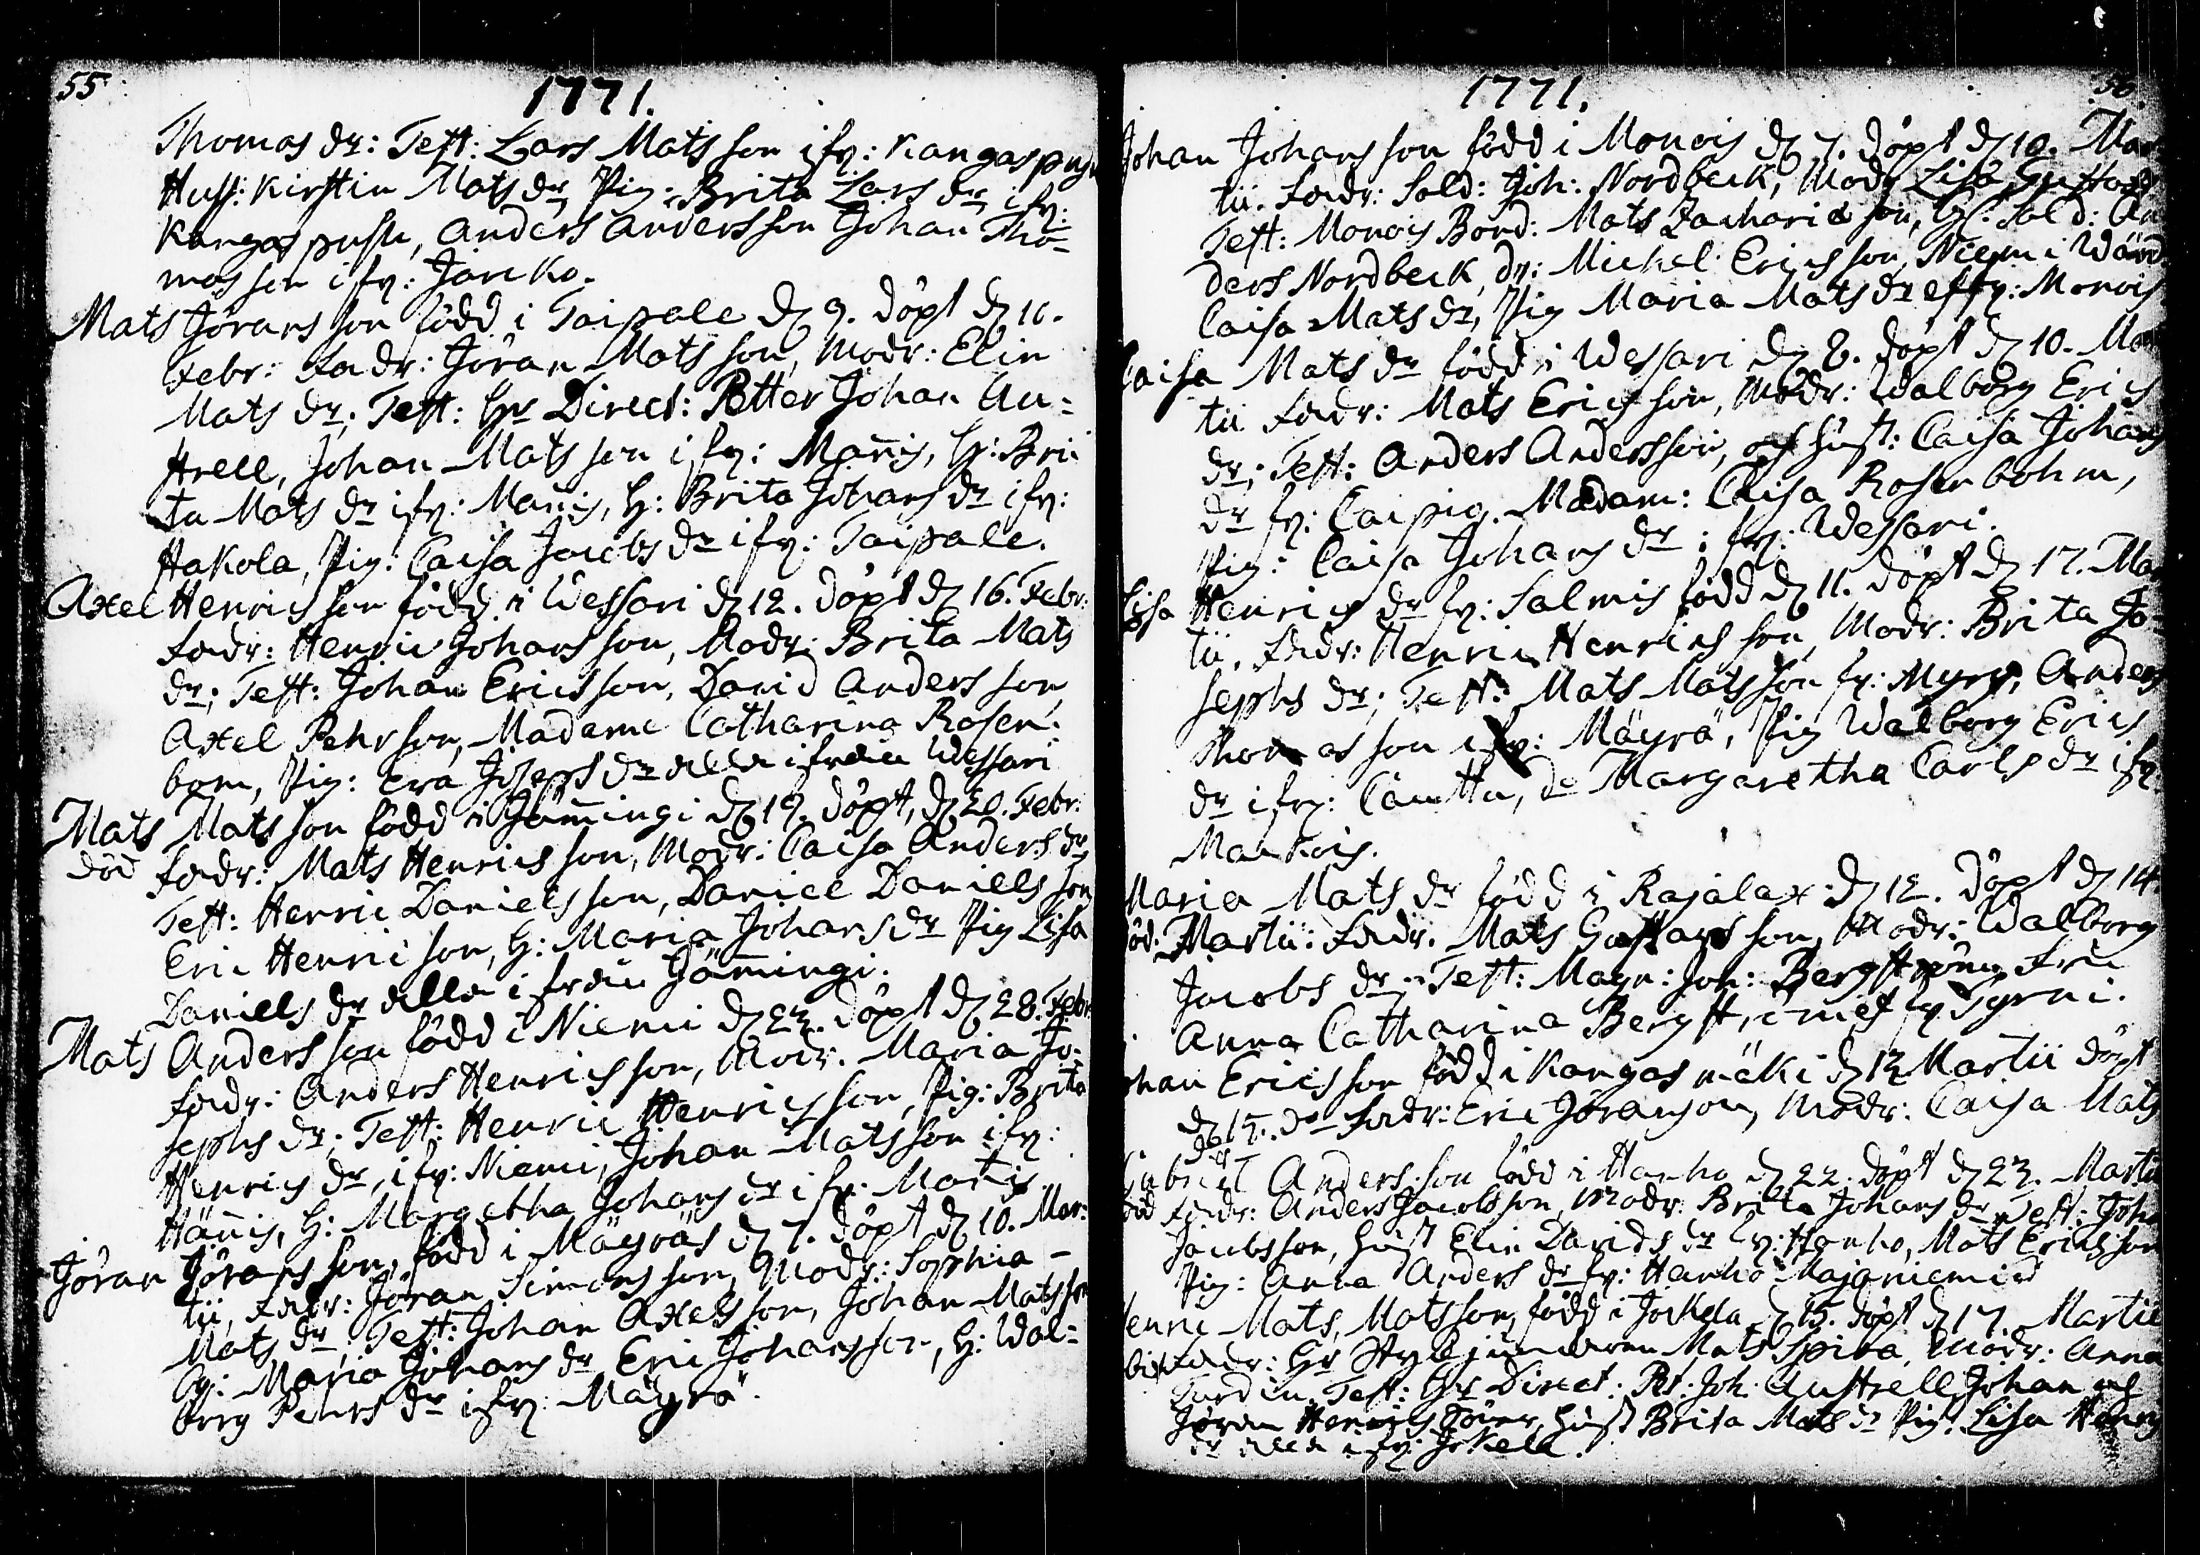 55
1771.
Thomas dr: Test: Lars Mats son ifr: Kangaspusu
Hust: Kirstin Mats dr, Pig: Brita Lars dr ifr:
Kangaspusu, Anders Andersson Johan Tho-
mas son ifr: Jariko.
Mats Jörans son född i Taipale d 9. döpt d 10.
Febr: Fadr: Jöran Mats son, Modr: Elin
Mats dr; Test: Hr Direct: Petter Johan Au=
strell, Johan Mats son ifr: Mañis, H: Bri
ta Mats dr ifr: Mañis, H: Brita Johans dr ifr:
Hakola, Pig: Caisa Jacobs dr ifr: Taipale.
Axel Henrics son född i Wessari d 12. döpt d 16. Febr:
Fadr: Henric Johans son, Modr: Brita Mats
dr; Test: Johan Ericsson, David Anders son,
Axel Pehr son, Madame Catharina Rosen=
bom, Pig: Eva Josephs dr alla ifrån Wessari
Mats Mats son född i Jämingi d 19. döpt, d 20. Febr:
död Fadr: Mats Henrics son, Modr: Caisa Anders dr,
Test: Henric Daniels son, Daniel Daniels son
Eric Henric son, H: Maria Johans dr Pig Lisa
Daniells dr alla ifrån Jämingi.
Mats Anders son född i Niemi d 23. döpt d 28. Febr:
Fadr: Anders Henrics son, Modr. Maria Jo=
sephs dr; Test: Henric Henrics son, Pig: Brita
Henrics dr, ifr: Niemi, Johan Mats son ifr:
Häñis, H: Margetha Johans dr ifr: Markis.
Jöran Jörans son, född i Mäyräs d 7. döpt d 10. Mar:
tii, Fadr: Jöran Simons son, Modr: Sophia
Mats dr, Test: Johan Axels son, Johan Mats son
Maria Johans dr Eric Johansson, H: Wal=
borg Pehrs dr ifr: Mäyrä.
56
1771.
Johan Johans son född i Monois d 7. döpt d 10. Mar
tii. Fadr: Sold: Joh: Nordbeck, Modr Lisa Gustafs
Test: Monois Bond: Mats Zacharia son, Sold: An
ders Nordbeck, dr: Michel Erics son, Niemi Wärd
Caisa Mats dr, Pig Maria Mats dr ifr: Monois
Caisa Mats dr född i Wessari d 8. döpt d 10. Mar
tii Fadr: Mats Erics son, Modr: Walborg Erics
dr; Test: Anders Andersson, och hust: Caisa Johans
dr fr: Caipig. Madam: Caisa Rosenbohm,
Pig: Caisa Johans dr: fr: Wessari.
Lisa Henrics dr fr: Salmis född d 11. döpt d 17. Mar
tii. Fadr: Henric Henrics son, Modr: Brita Jo-
sephs dr; Test: Mats Mats son fr: Myry, Anders
Thomas son ifr: Mäyrä, Pig Walborg Erics
dr ifr: Cautta, do Margaretha Carls dr ifr
Markois.
Maria Mats dr född i Rajalax d 12. döpt d 14
död. Martii: Fadr. Mats Gustavs son, Modr: Walborg
Jacobs dr; Test: Magn: Joh: Bergström, Fru
Anna Catharina Bergst, fr Tyrni.
Johan Erics son född i Kangasmäki d 13 Martii döpt
d 17. do Fadr: Eric Jöranson, Modr: Caisa Mats
dr
Gabriel Anders son född i Hanho d 22. döpt d 23. Martii
död Fadr: Anders Jacobsson, Modr: Brita Johans dr Test: Joha
Jacobsson, Hust Elin Davids dr fr: Hanho, Mats Ericsson
Pig: Anna Anders dr fr: Hanho Majaniemi
Henric Mats, Matsson, född i Jokela d 15. döpt d 17. Martii
Fadr: Hr Mats Spira, Modr: Anna
Turdin, Test: Hr Direct: Pet: Joh: Austrell, Johan och
Jöran Henrics Söner, Hust Brita Mats dr Pig. Lisa Henrics
dr alla ifr: Jokela.